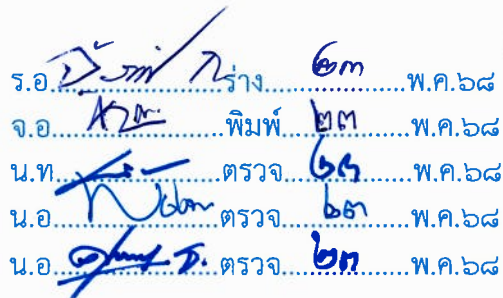 ร.อ.....ร่าง.....๒๓.....พ.ค.๖๘
จ.อ.....พิมพ์.....๒๓.....พ.ค.๖๘
น.ท.....ตรวจ.....๒๓.....พ.ค.๖๘
น.อ.....ตรวจ.....๒๓.....พ.ค.๖๘
น.อ.....ตรวจ.....๒๓.....พ.ค.๖๘